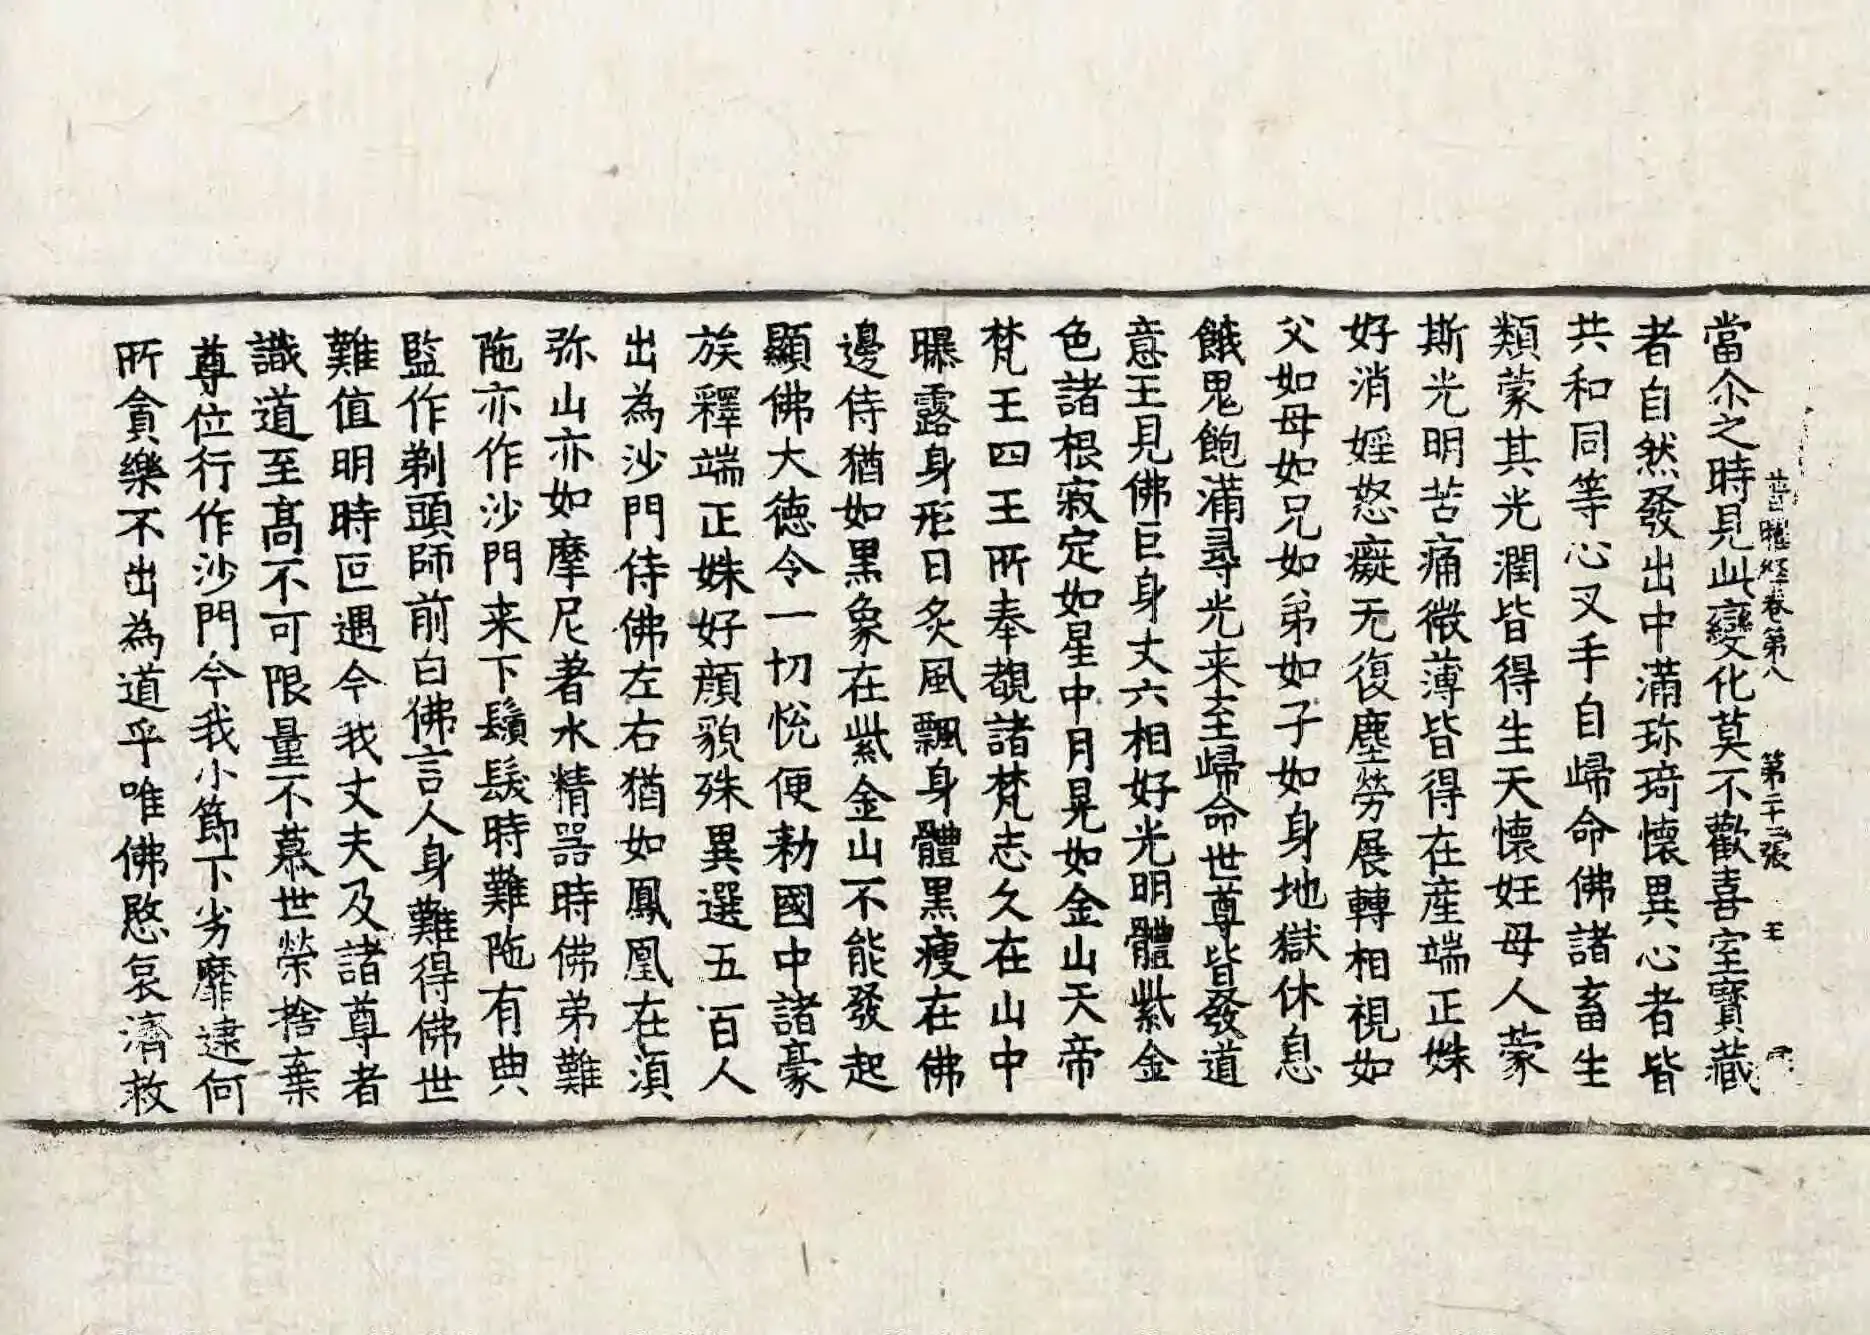 普曜經卷第八 第二十三張 王
當尒之時見此變化莫不歡喜室寶藏
者自然發出中滿珎琦懷異心者皆
共和同等心叉手自歸命佛諸畜生
類蒙其光潤皆得生天懷妊母人蒙
斯光明苦痛微薄皆得在産端正姝
好消婬怒癡无復塵勞展轉相視如
父如母如兄如弟如子如身地獄休息
餓鬼飽滿尋光来至歸命世尊皆發道
意王見佛巨身丈六相好光明體紫金
色諸根寂定如星中月晃如金山天帝
梵王四王所奉覩諸梵志久在山中
曝露身形日炙風飄身體黒瘦在佛
邊侍猶如黒象在紫金山不能發起
顯佛大徳令一切悅便勑國中諸豪
族釋端正姝好顔貌殊異選五百人
出為沙門侍佛左右猶如鳳凰在湏
弥山亦如摩尼著水精噐時佛弟難
陁亦作沙門来下鬚髮時難陁有典
監作剃頭師前白佛言人身難得佛世
難值明時叵遇今我丈夫及諸尊者
識道至髙不可限量不慕世榮捨棄
尊位行作沙門今我小節下劣靡逮何
所貪樂不出為道乎唯佛愍哀濟救